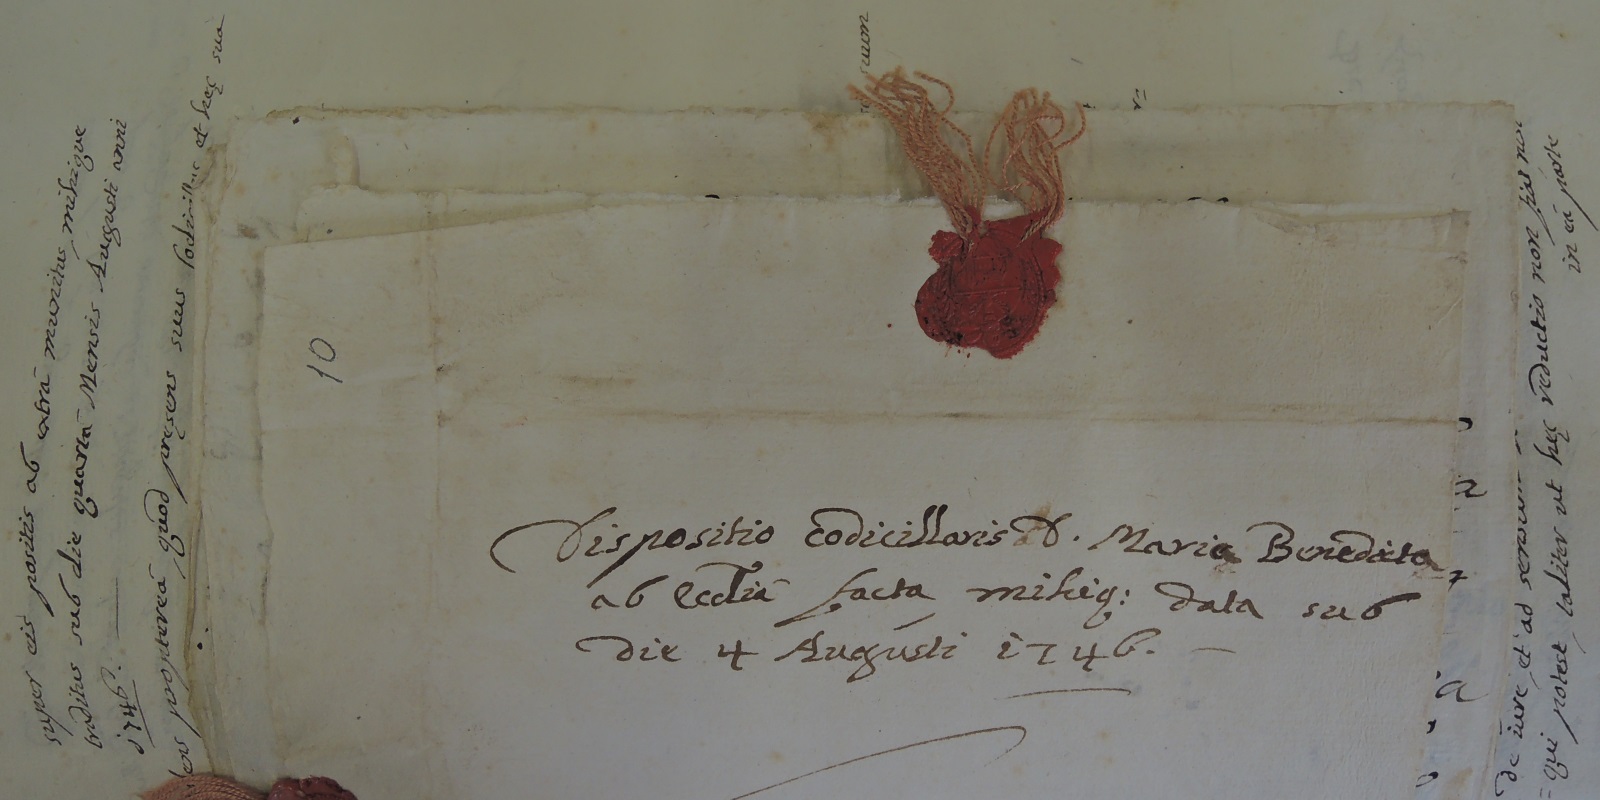 super eis positis ab extrà munitus mihique
traditus sub die quarta Mensis Augusti anni
1746.
propterea quod presens suus et hec sua
suum
10
Dispositio Codicillaris D. Maria Benedicta
ab Ecctia facta mihiq: data sub
die 4 Augusti 1746.
de iure, et ad sensum
qui potest, taliter ut hec reductio non
in ea parte